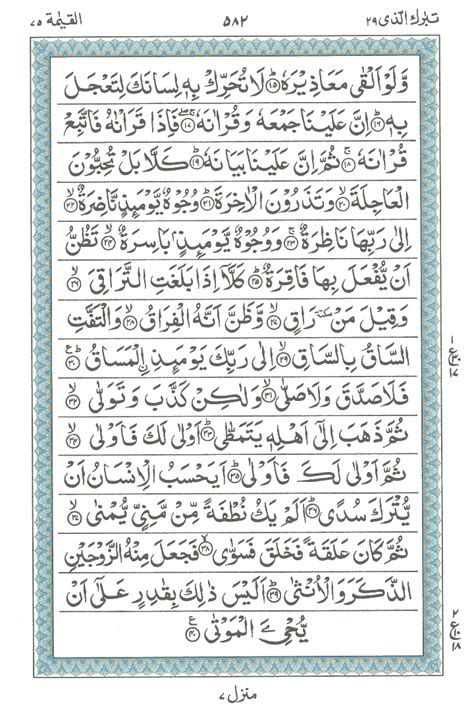 تبارك الذى ٢٩ ٥٨٢ القيٰمة ٧٥
وَّلَوْ اَلْقٰى مَعَاذِيْرَهٗؕ ﴿١٥﴾ لَا تُحَرِّكْ بِهٖ لِسَانَكَ لِتَعْجَلَ
بِهٖؕ ﴿١٦﴾ اِنَّ عَلَيْنَا جَمْعَهٗ وَقُرْاٰنَهٗۚ ﴿١٧﴾ فَاِذَا قَرَاْنٰهُ فَاتَّبِعْ
قُرْاٰنَهٗۚ ﴿١٨﴾ ثُمَّ اِنَّ عَلَيْنَا بَيَانَهٗؕ ﴿١٩﴾ كَلَّا بَلْ تُحِبُّوْنَ
الْعَاجِلَةَۙ ﴿٢٠﴾ وَتَذَرُوْنَ الْاٰخِرَةَؕ ﴿٢١﴾ وُجُوْهٌ يَّوْمَئِذٍ نَّاضِرَةٌۙ ﴿٢٢﴾
اِلٰى رَبِّهَا نَاظِرَةٌۚ ﴿٢٣﴾ وَوُجُوْهٌ يَّوْمَئِذٍۭ بَاسِرَةٌۙ ﴿٢٤﴾ تَظُنُّ
اَنْ يُّفْعَلَ بِهَا فَاقِرَةٌؕ ﴿٢٥﴾ كَلَّاۤ اِذَا بَلَغَتِ التَّرَاقِىَۙ ﴿٢٦﴾
وَقِيْلَ مَنْ ٚ رَاقٍۙ ﴿٢٧﴾ وَّظَنَّ اَنَّهُ الْفِرَاقُۙ ﴿٢٨﴾ وَالْتَفَّتِ
السَّاقُ بِالسَّاقِۙ ﴿٢٩﴾ اِلٰى رَبِّكَ يَوْمَئِذِ ۨالْمَسَاقُؕ ﴿٣٠﴾
فَلَا صَدَّقَ وَلَا صَلّٰىۙ ﴿٣١﴾ وَلٰكِنْ كَذَّبَ وَتَوَلّٰىۙ ﴿٣٢﴾
ثُمَّ ذَهَبَ اِلٰٓى اَهْلِهٖ يَتَمَطّٰىؕ ﴿٣٣﴾ اَوْلٰى لَكَ فَاَوْلٰىۙ ﴿٣٤﴾
ثُمَّ اَوْلٰى لَكَ فَاَوْلٰىؕ ﴿٣٥﴾ اَيَحْسَبُ الْاِنْسَانُ اَنْ
يُّتْرَكَ سُدًىؕ ﴿٣٦﴾ اَلَمْ يَكُ نُطْفَةً مِّنْ مَّنِىٍّ يُّمْنٰىۙ ﴿٣٧﴾
ثُمَّ كَانَ عَلَقَةً فَخَلَقَ فَسَوّٰىۙ ﴿٣٨﴾ فَجَعَلَ مِنْهُ الزَّوْجَيْنِ
الذَّكَرَ وَالْاُنْثٰىؕ ﴿٣٩﴾ اَلَيْسَ ذٰلِكَ بِقٰدِرٍ عَلٰٓى اَنْ
يُّحْیِۦَ الْمَوْتٰى ﴿٤٠﴾
منزل ٧